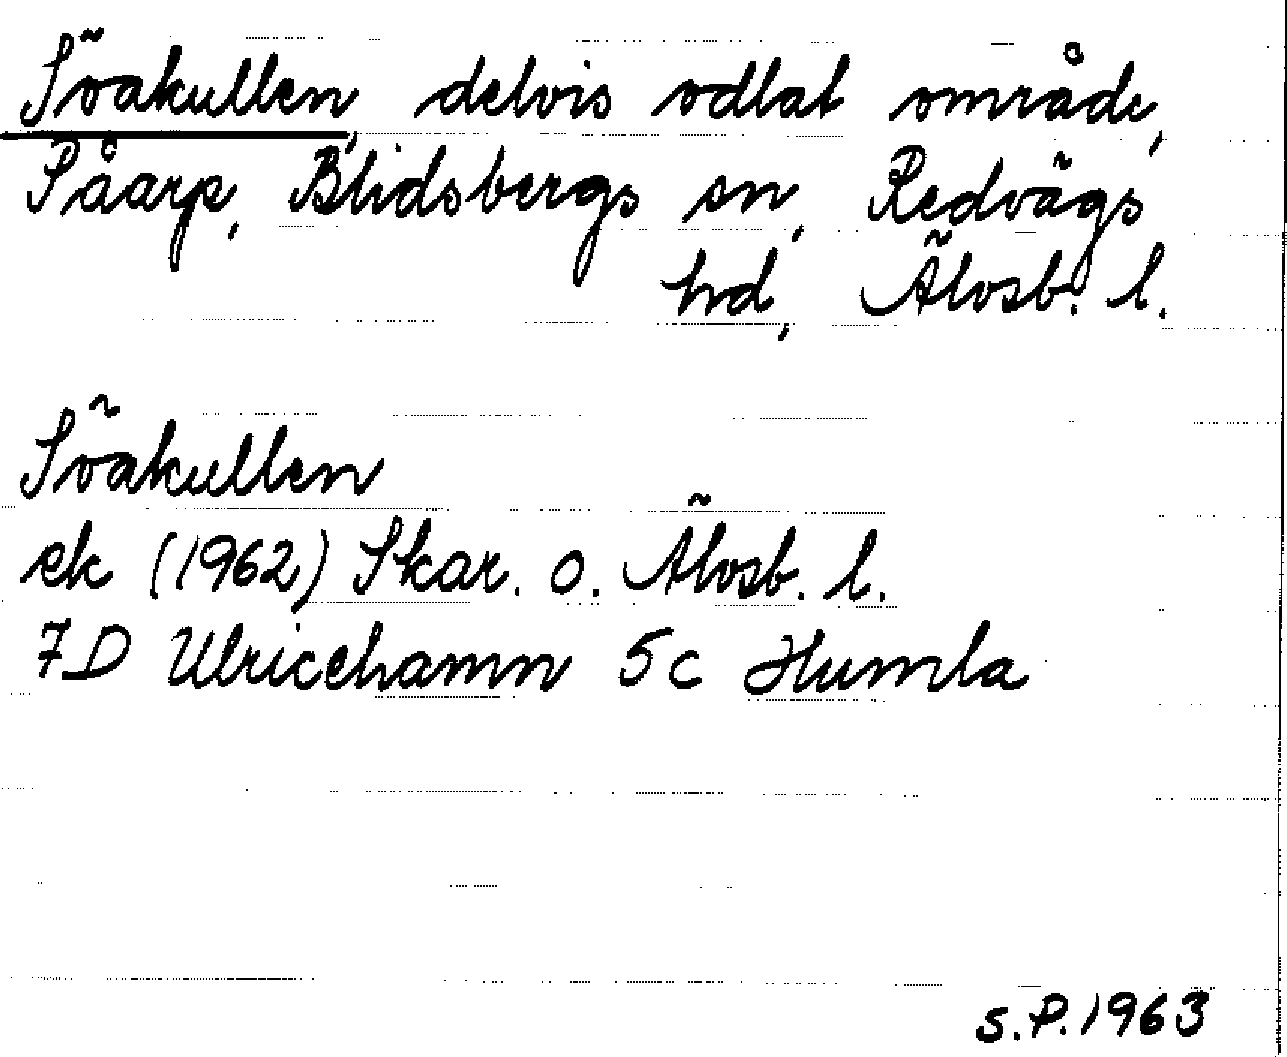 Söakullen, delvis odlat område,
Påarp, Blidsbergs sn, Redvägs
hd, Älvsb. l.
Söakullen
ek (1962) Skar. o. Älvsb. l.
7D Ulricehamn 5c Humla
S.P. 1963